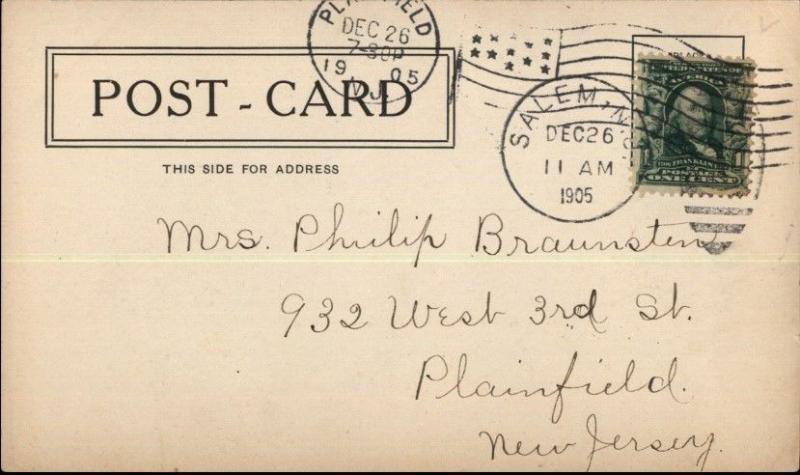 PLAINFIELD
DEC 26
7-30P
19 05
N.J.
SALEM, N.J.
DEC 26
11 AM
1905
POST - CARD
THIS SIDE FOR ADDRESS
FRANKLIN
POSTAGE
ONE CENT
Mrs. Philip Braunstein
932 West 3rd St.
Plainfield.
New Jersey.